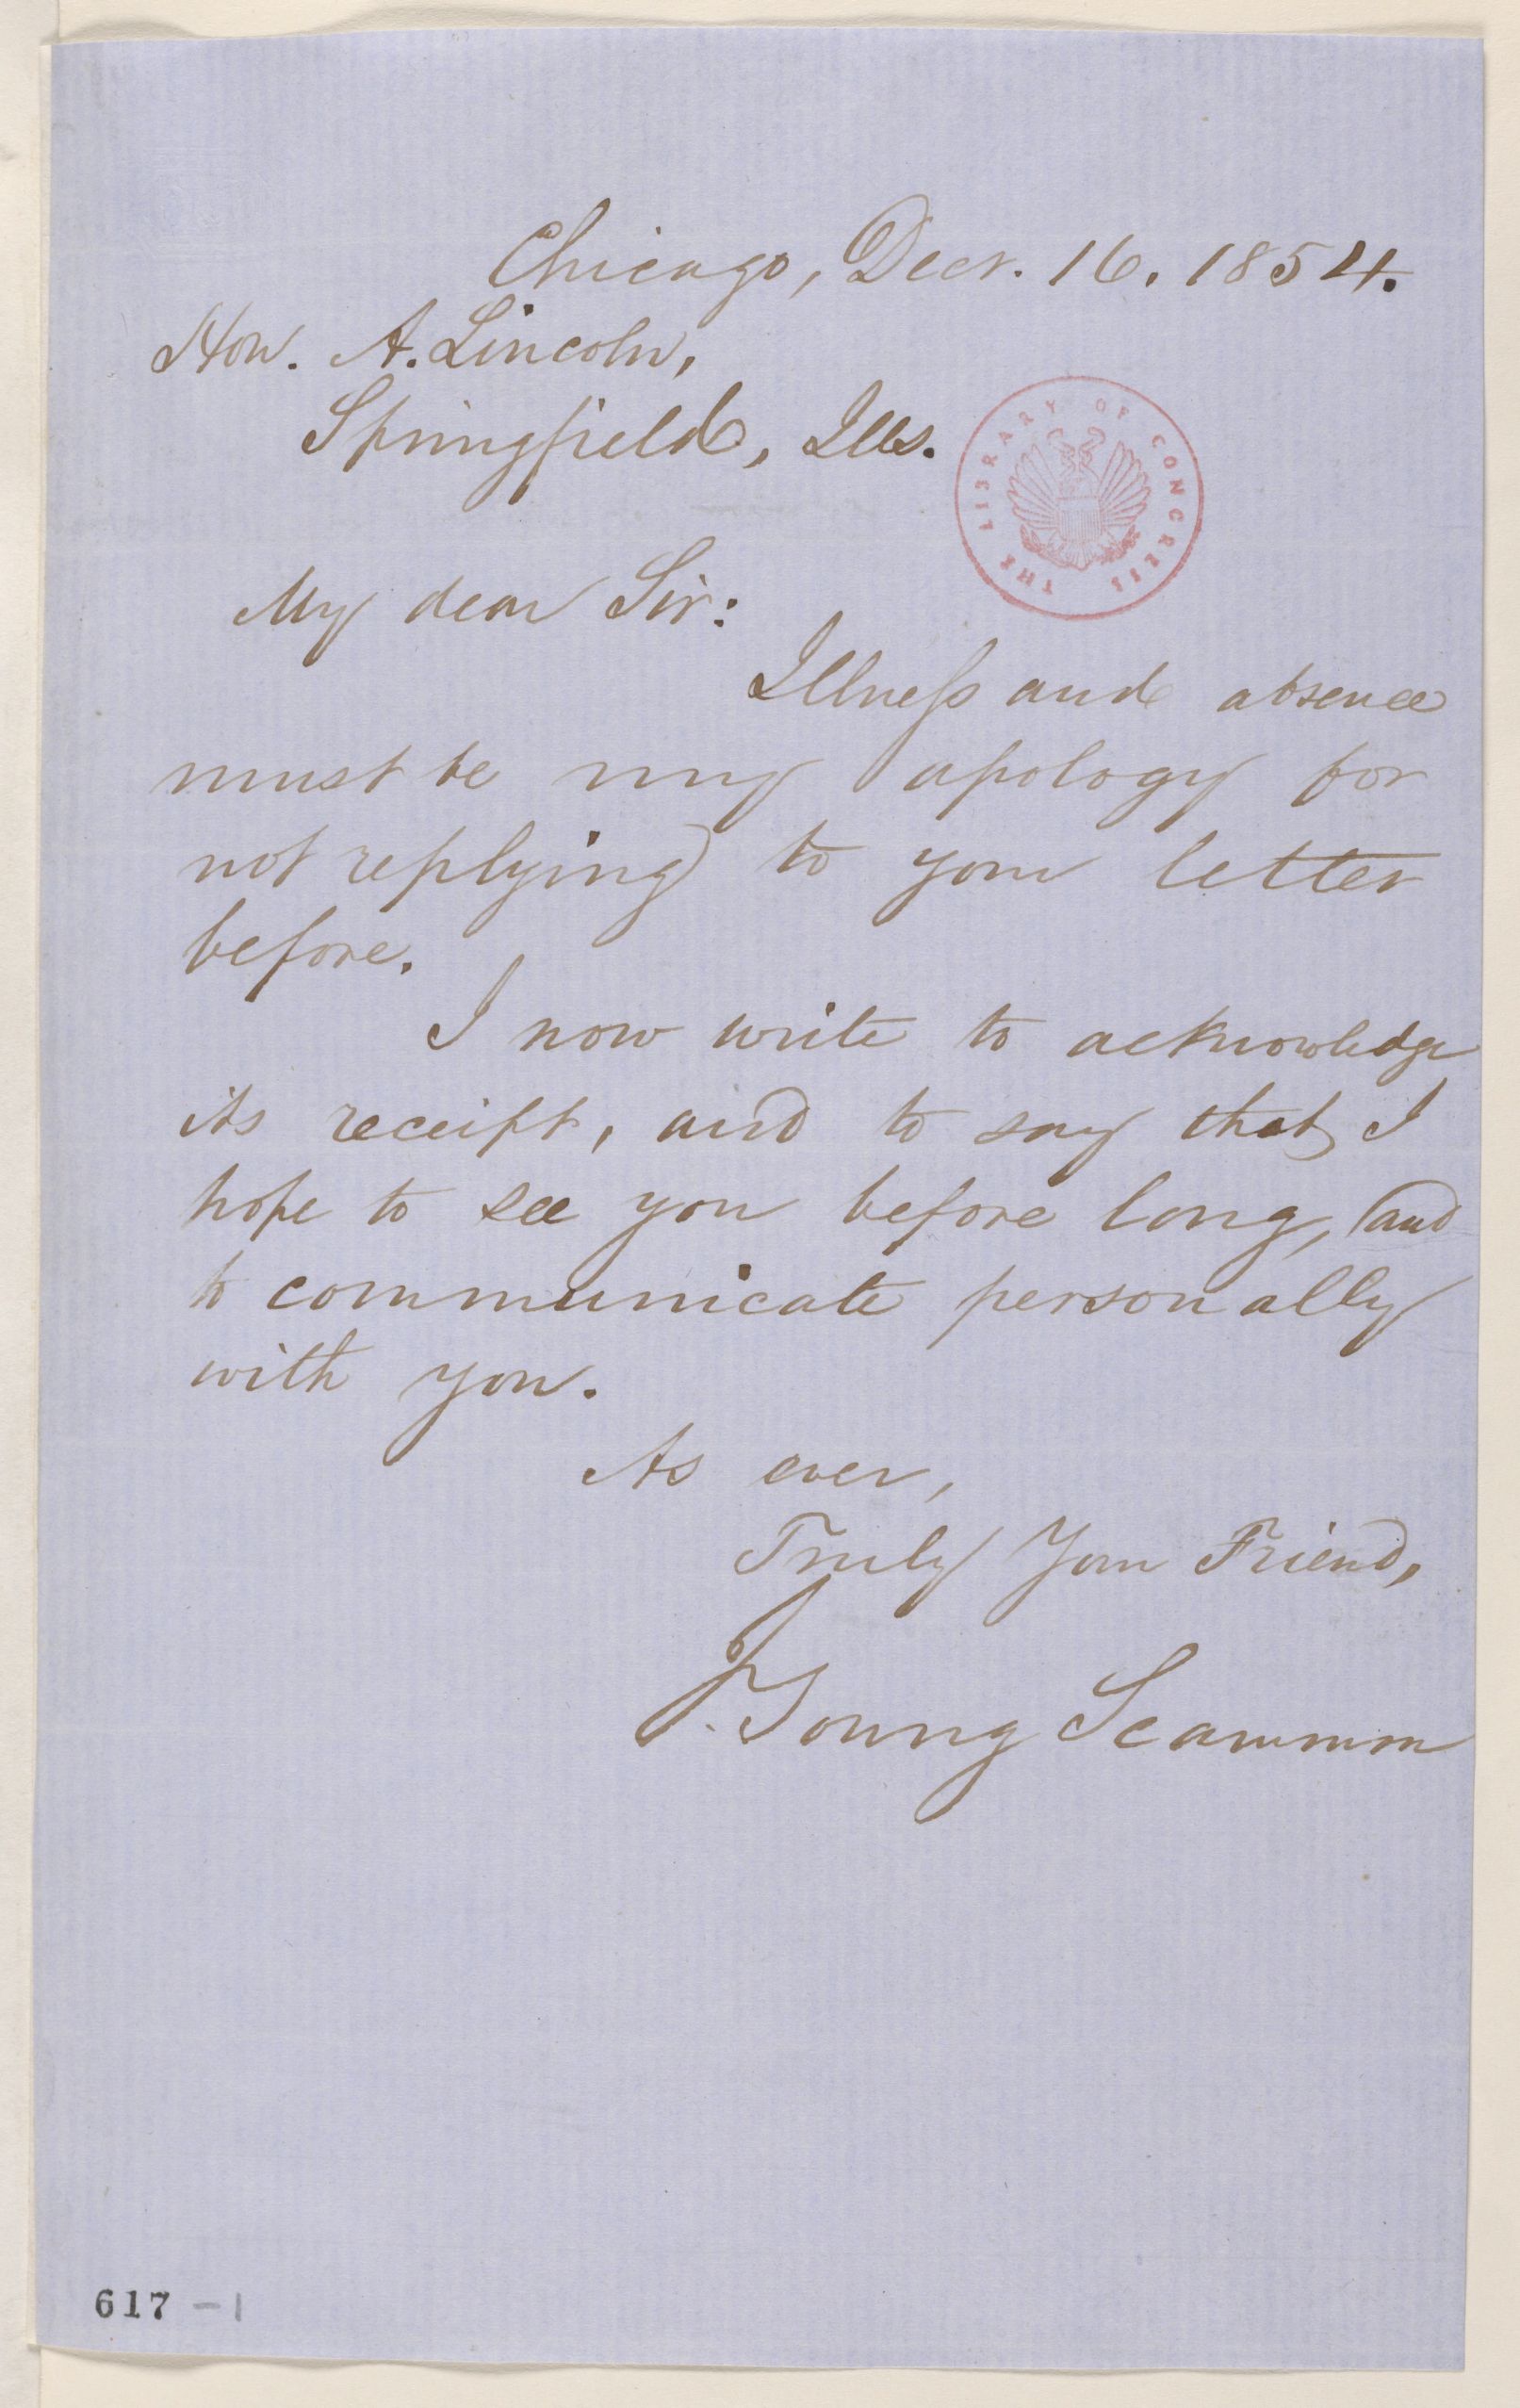 Chicago, Decr. 16. 1854.
Hon. A. Lincoln,
Springfield, Ills.
THE LIBRARY OF CONGRESS
My dear Sir:
Illness and absence
must be my apology for
not replying to your letter
before.
I now write to acknowledge
its receipt, and to say that I
hope to see you before long, and
to communicate personally
with you.
As ever,
Truly Your Friend,
J. Young Scammon
617 -1